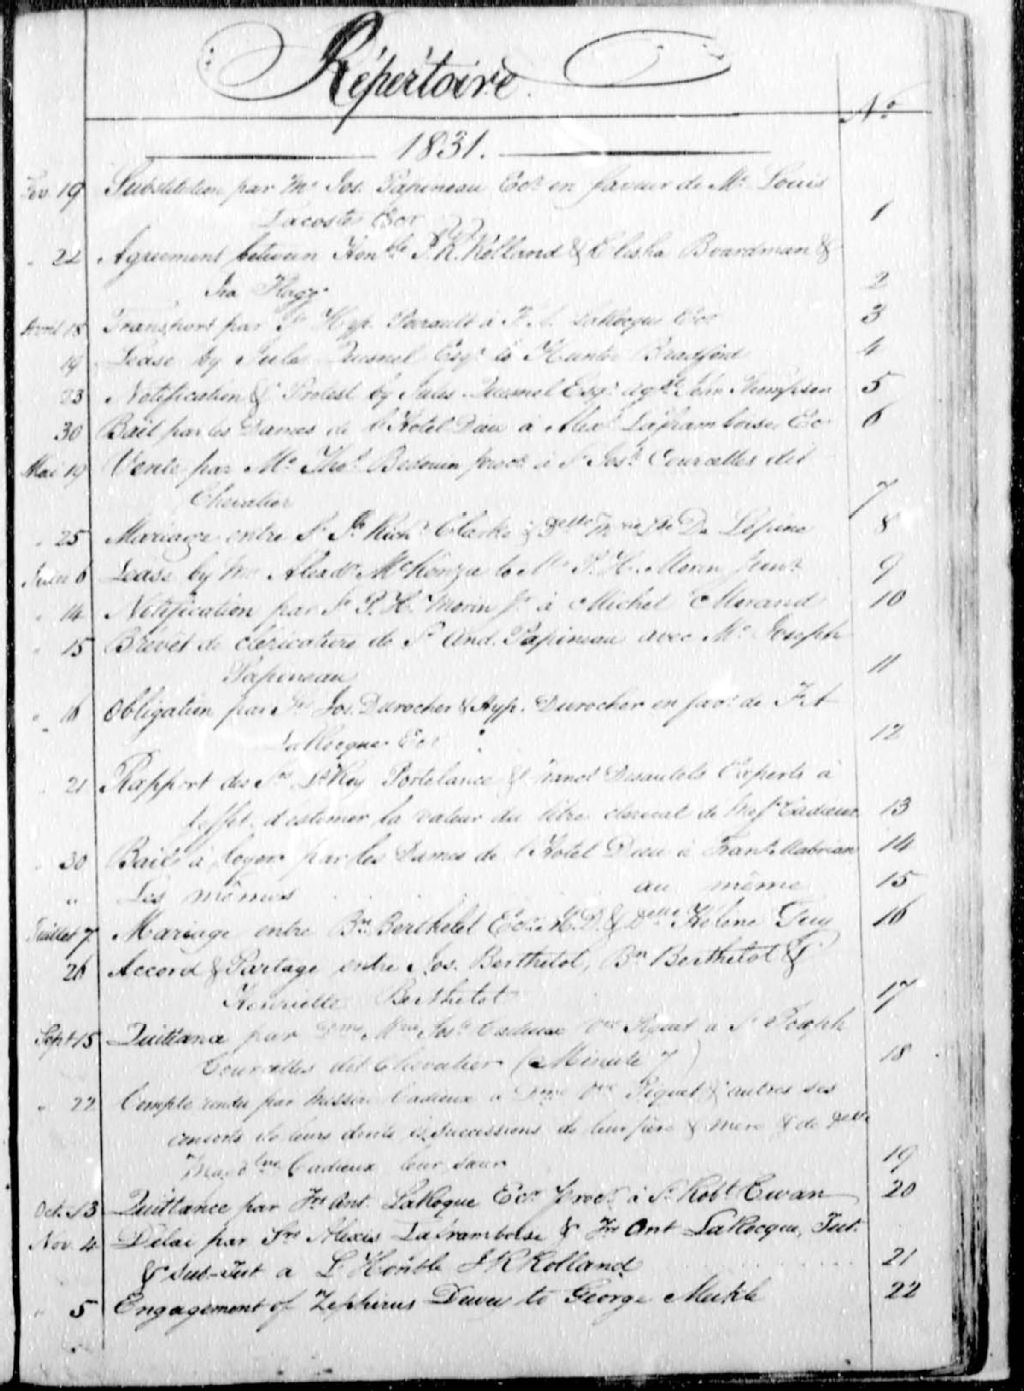 Répertoire.
No
1831.
Fev. 19 Substitution par Mr Jos. Papineau Ecr en faveur de Mr Louis
Lacoste Ecr 1
" 22 Agreement between Honble J. R. Rolland & Elisha Boardman &
Ira Flagg 2
Avril 18 Transport par Sr Hyp. Perrault à F. A. LaRocque Ecr 3
19 Lease by Jules Quesnel Esqr to Hunter Bradford 4
23 Notification & Protest by Jules Quesnel Esqr agst John Simpson 5
30 Bail par les Dames de l'Hotel Dieu à Alexis Laframboise, Ecr 6
Mai 19 Vente par Mr Thos. Bedouin procr à Sr Josh Courcelles dit
Chevalier 7
" 25 Mariage entre Sr Richd Clarke & Delle Lepine 8
Juin 6 Lease by Alexdr McKenzie to Mr P. H. Morin Junr 9
" 14 Notification par Sr P. H. Morin Jr à Michel Morand 10
" 15 Brevet de clericature de Sr And. Papineau avec Mr Joseph
Papineau 11
" 16 Obligation par Jos. Durocher & Hyp. Durocher en favr de F. A
LaRocque Ecr 12
" 21 Rapport des Srs Ls Roy Portelance & Francs Desautels Experts à
l'effet d'estimer la valeur du titre clerical de Mesre Cadieux 13
" 30 Bails à loyer par les Dames de l'Hotel Dieu à Frans. Mabrian 14
" Les mêmes au même 15
Juillet 7 Mariage entre Bn. Berthelet Ecr M.D. & Delle Helene Guy 16
26 Accord & Partage entre Jos. Berthelot, Bn Berthelot &
Henriette Berthelot 17
Sept 15 Quittance par Dme Mrie Josh Cadieux Vve Piquet a Sr Joseph
Courcelles dit Chevalier (Minute 7) 18
" 22 Compte rendu par Messire Cadieux a Dme Vve Piquet & autres ses
consorts de leurs droits ès successions de leur père & mere & de Delle
Cadieux leur sœur 19
Oct. 13 Quittance par Frs Ant. LaRoque Ecr Procr à Sr Robt Ewan 20
Nov. 4 Délai par Srs Alexis Laframboise & Frs Ant LaRocque, Tut.
& Sub-Tut a L'Honble J R Rolland 21
" 5 Engagement of Zephirus Duvey to George Meikle 22